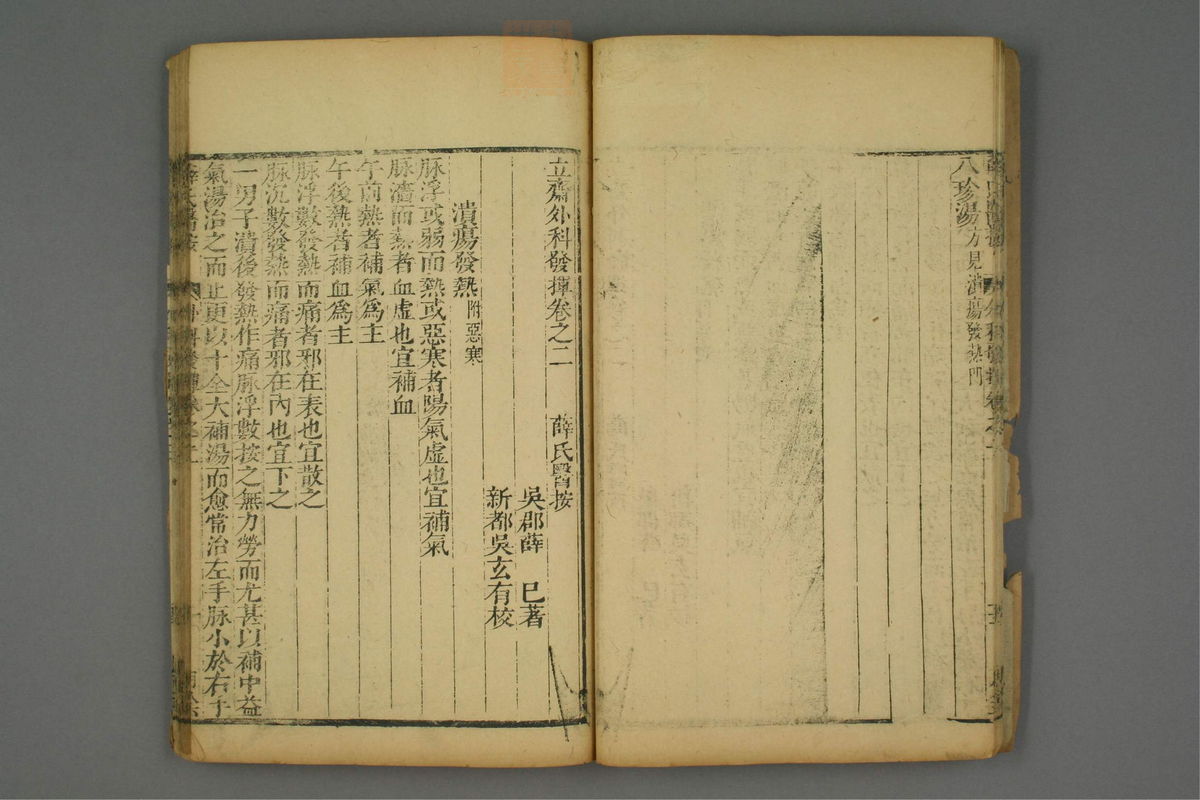 八珍湯方見潰瘍發熱門
立齋外科發揮卷之二　薛氏醫按
吳郡薛　已著
新都吳玄有校
潰瘍發熱附惡寒
脉浮或弱而熱或惡寒者陽氣虛也宜補氣
脉濇而熱者血虛也宜補血
午前熱者補氣爲主
午後熱者補血爲主
脉浮數發熱而痛者邪在表也宜散之
脉沉數發熱而痛者邪在內也宜下之
一男子潰後發熱作痛脉浮數按之無力勞而尤甚以補中益
氣湯治之而止更以十全大補湯而愈常治左手脉小於右手
薛氏醫按　外科發揮卷之二